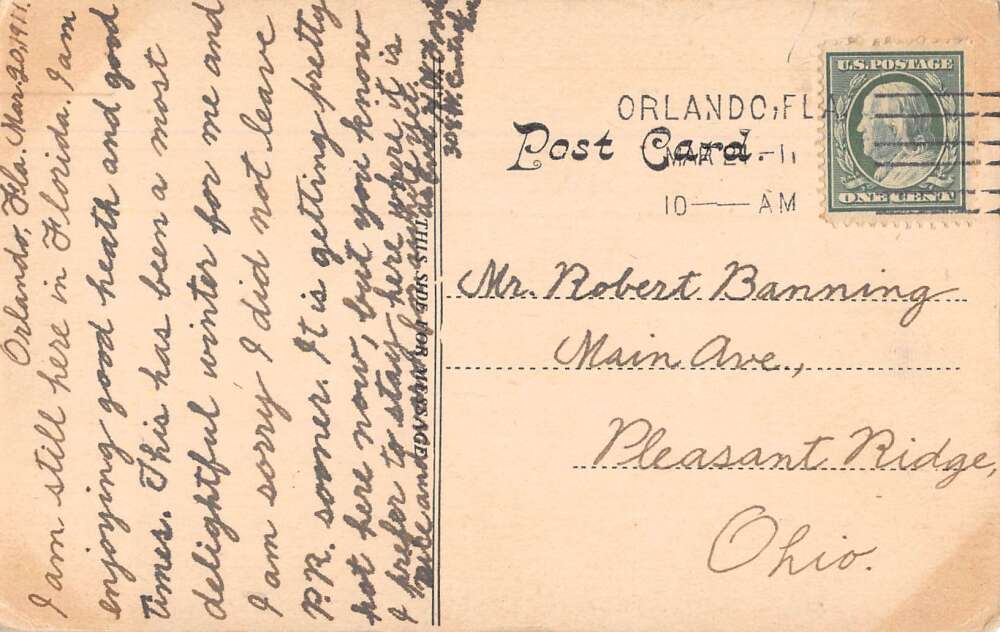 Orlando, Fla. Mar. 20, 1911.
I am still here in Florida. I am
enjoying good heath and good
times. This has been a most
delightful winter for me and
I am sorry I did not leave
P.R. sooner. It is getting pretty
hot here now, but you know
I prefer to stay here where it is
THIS SIDE FOR MESSAGE
U.S. POSTAGE
ONE CENT
ORLANDO, FLA.
MAR 21 11
10 — AM
Post Card.
Mr. Robert Banning
Main Ave.,
Pleasant Ridge,
Ohio.